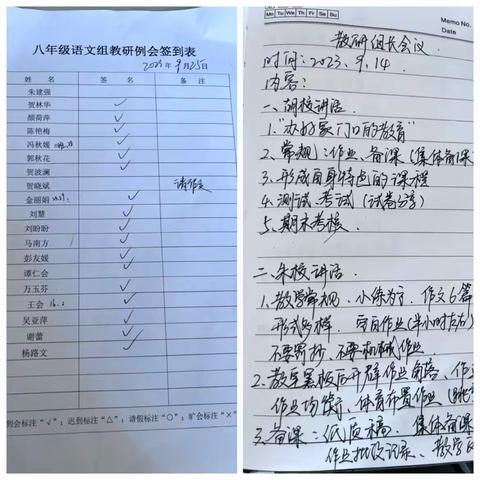 八年级语文组教研例会签到表
2023年9月25日
姓 名 签 名 备 注
朱建强
贺林华 ✓
颜荷萍 ✓
陈艳梅 ✓
冯秋媛 ✓
郭秋花 ✓
贺波澜 ✓
贺晓斌 请假
金丽娟 ✓
刘慧 ✓
刘盼盼 ✓
马南方 ✓
彭友媛 ✓
谭仁会 ✓
万玉芬 ✓
王会 ✓
吴亚萍 ✓
谢蕾 ✓
杨路文
到会标注“√”；迟到标注“△”；请假标注“○”；旷会标注“×”
Mo Tu We Th Fr Sa Su
Memo No.
Date
教研组长会议
时间：2023、9、14
内容：
一、胡校讲话
1.“办好家门口的教育”
2、常规：作业、备课（集体备课
3、形成自身特色的课程
4、测试、考试（试卷分享）
5、期末考核
二、朱校讲话
1、教学常规、小练为主，作文6篇
形式多样， 作业（半小时左右）
不要罚抄、不要机械作业
2、教室黑板后开辟作业角落、作
作业 体育布置作业
3、备课： 集体备课
作业批改记录、教学